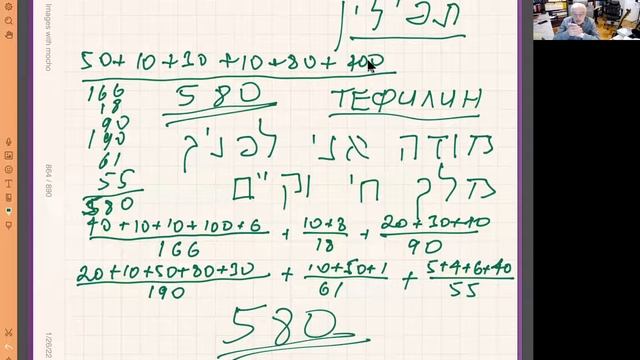 תפילין
50+10+30+10+80+400
166
18
90
190
61
55
580
580 ТЕФИЛИН
מודה אני לפניך
מלך חי וקיים
40+10+10+100+6 + 10+8 + 20+30+40
166 18 90
20+10+50+80+30 + 10+50+1 + 5+4+6+40
190 61 55
580
Images with mocho
864 / 890
1/26/22